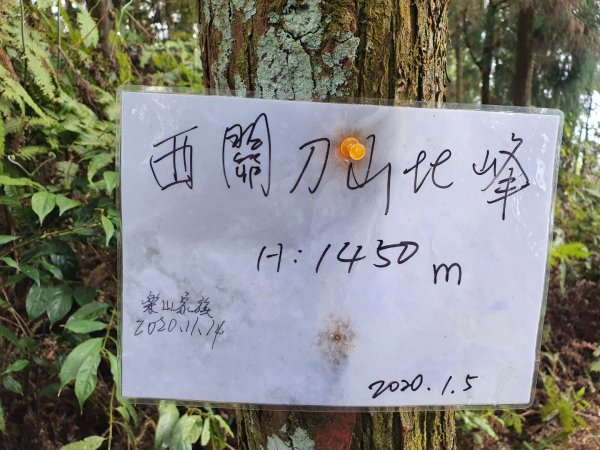 西關刀山北峰
H:1450 m
樂山家族
2020.11.14
2020.1.5